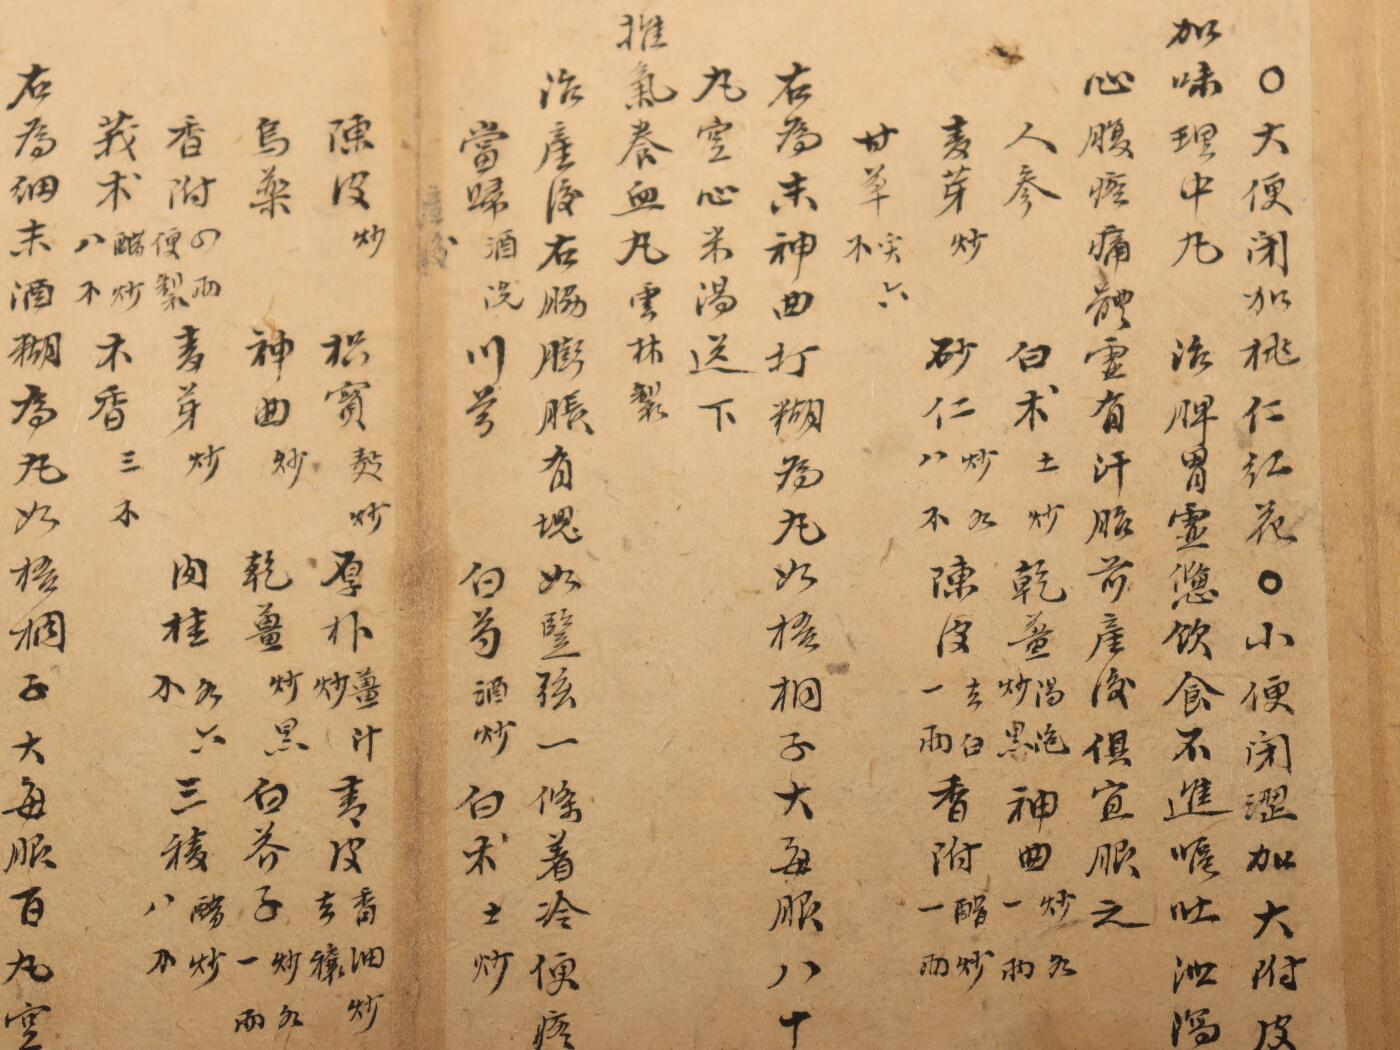 ○大便閉加桃仁紅花○小便閉澀加大附皮
加味理中丸 治脾胃虛憊飲食不進嘔吐泄瀉
心腹疼痛體虛有汗胎前產後俱宜服之
人參 白朮土炒 乾薑湯泡炒黑 神曲炒各一兩
麦芽炒 砂仁炒各八不 陳皮去白一兩 香附醋炒一兩
甘草炙六不
右為末神曲打糊為丸如梧桐子大每服八十
丸空心米湯送下
推氣養血丸雲林製
治產後右脇膨脹有塊如豎弦一條着冷便疼
當歸酒洗 川芎 白芍酒炒 白朮土炒
陳皮炒 枳實麸炒 厚朴薑汁炒 青皮香油炒去穰
烏藥 神曲炒 乾薑炒黑 白芥子炒各一兩
香附四兩便製 麦芽炒 肉桂各六不 三稜醋炒八不
莪朮醋炒八不 木香三不
右為細末酒糊為丸如梧桐子大每服百丸空